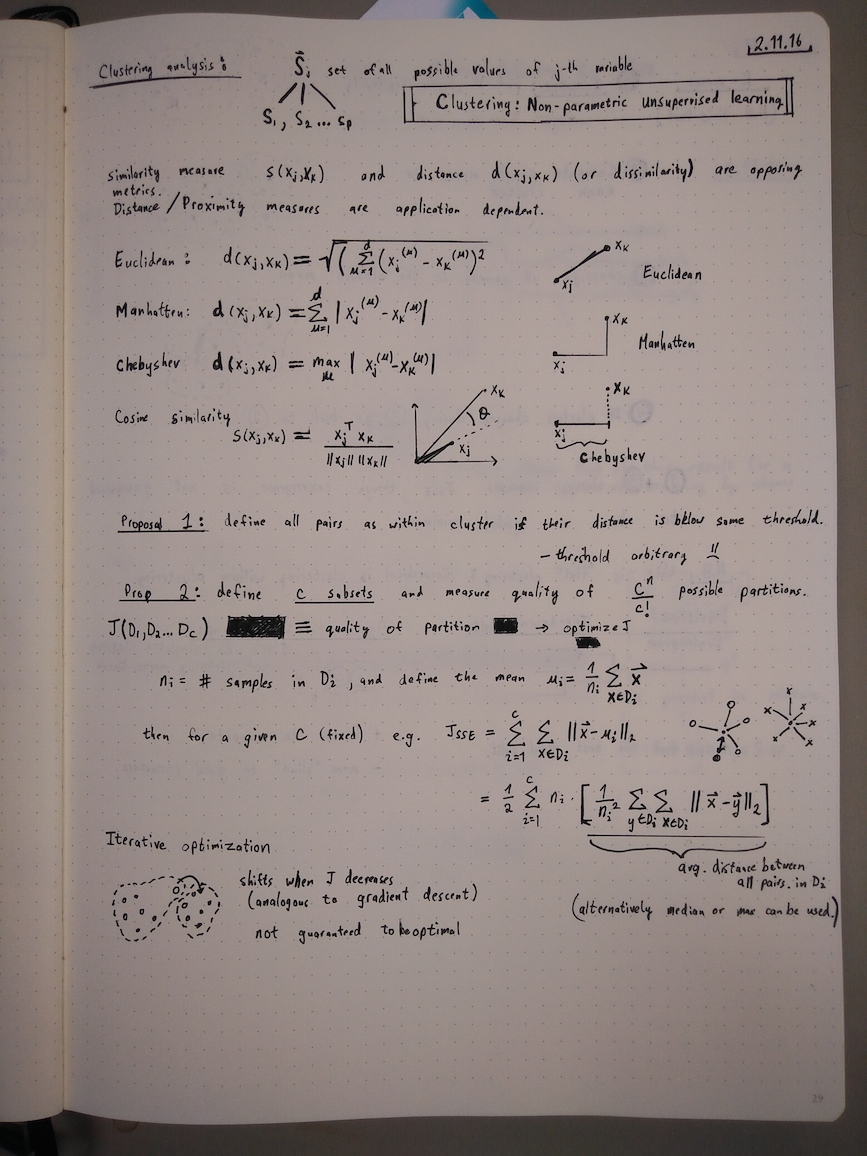 2.11.16
Clustering analysis: S⃗ᵢ set of all possible values of j-th variable
S₁, S₂ ... Sp
Clustering: Non-parametric unsupervised learning
similarity measure s(xⱼ,xₖ) and distance d(xⱼ,xₖ) (or dissimilarity) are opposing
metrics.
Distance/Proximity measures are application dependent.
Euclidean: d(xⱼ,xₖ) = √( Σ_{μ=1}^{d} (xⱼ^(μ) - xₖ^(μ))²
xₖ
xⱼ
Euclidean
Manhatten: d(xⱼ,xₖ) = Σ_{μ=1}^{d} | xⱼ^(μ) - xₖ^(μ) |
xₖ
xⱼ
Manhatten
Chebyshev d(xⱼ,xₖ) = max_μ | xⱼ^(μ) - xₖ^(μ) |
xₖ
xⱼ
Chebyshev
Cosine similarity
s(xⱼ,xₖ) = xⱼᵀ xₖ / ||xⱼ|| ||xₖ||
xₖ
θ
xⱼ
Proposal 1: define all pairs as within cluster if their distance is below some threshold.
- threshold arbitrary !!
Prop 2: define c subsets and measure quality of Cⁿ/c! possible partitions.
J(D₁,D₂... Dc) ≡ quality of partition → optimize J
nᵢ = # samples in Dᵢ, and define the mean μᵢ = 1/nᵢ Σ_{x∈Dᵢ} x⃗
then for a given C (fixed) e.g. J_SSE = Σ_{i=1}^{c} Σ_{x∈Dᵢ} ||x⃗ - μᵢ||₂
= 1/2 Σ_{i=1}^{c} nᵢ · [ 1/nᵢ² Σ_{y∈Dᵢ} Σ_{x∈Dᵢ} || x⃗ - y⃗ ||₂ ]
avg. distance between
all pairs. in Dᵢ
(alternatively median or max can be used.)
Iterative optimization
shifts when J decreases
(analogous to gradient descent)
not guaranteed to be optimal
29